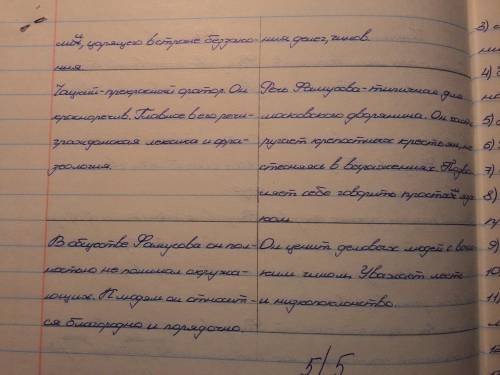 царящего в стране беззако-
ния.
ния денег, чинов.
Чацкий-прекрасный оратор. Он
красноречив. Главное в его речи-
гражданская лексика и фра-
зеология.
Речь Фамусова-типичная для
московского дворянина. Он часто
ругает крепостных крестьян, не
стесняясь в выражениях. Позво-
ляет себе говорить простым язы-
ком
В обществе Фамусова он пол-
ностью не понимал окружа-
ющих. К людям он относит-
ся благородно и порядочно.
Он ценит деловых людей с высо-
ким чином. Уважает лесть
и низкопоклонство.
5/5
3)
4)
5)
6)
7)
8)
9)
10
11
12